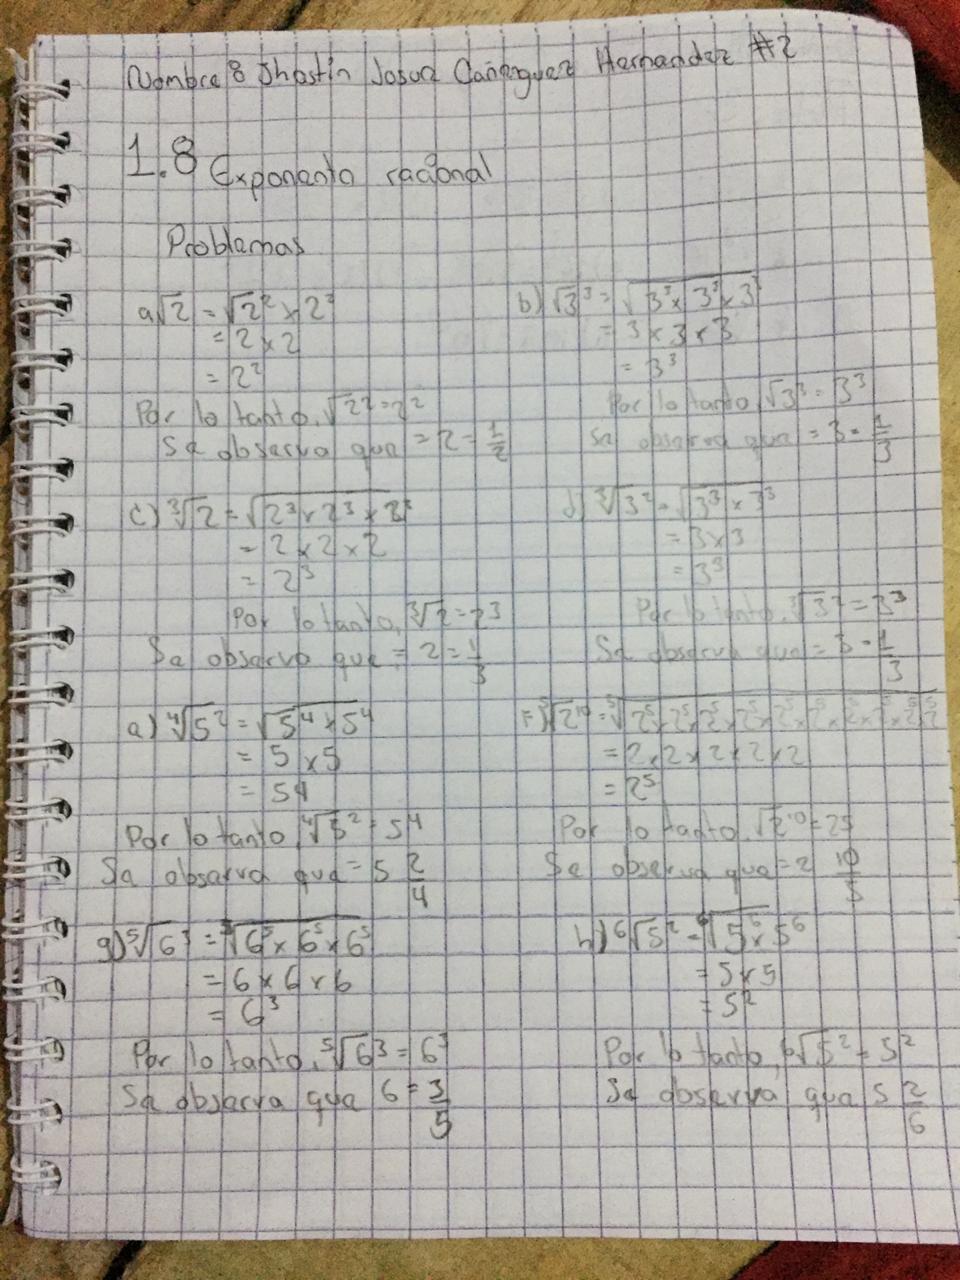 Nombre 8 Jhostin Josue Cañenguez Hernandez #2
1.8 Exponente racional
Problemas
a √2 = √2² × 2²
= 2 × 2
= 2²
Por lo tanto, √2² = 2²
Se observa que = 2 = 1/2
b) √3³ = √3³ × 3³ × 3³
= 3 × 3 × 3
= 3³
Por lo tanto, √3³ = 3³
Se observa que = 3 = 1/3
c) ³√2 = √2³ × 2³ × 2³
= 2 × 2 × 2
= 2³
Por lo tanto, ³√2 = 2³
Se observa que = 2 = 1/3
d) ³√3² = √3³ × 3³
= 3 × 3
= 3³
Por lo tanto, ³√3² = 3³
Se observa que = 3 = 1/3
e) ⁴√5² = √5⁴ × 5⁴
= 5 × 5
= 54
Por lo tanto, ⁴√5² = 5⁴
Se observa que = 5 2/4
F) ⁵√2¹⁰ = ⁵√2⁵ × 2⁵ × 2⁵ × 2⁵ × 2⁵ × 2⁵ × 2⁵ × 2⁵ × 2⁵ 2⁵
= 2 × 2 × 2 × 2 × 2
= 2⁵
Por lo tanto, √2¹⁰ = 25
Se observa que = 2 10/5
g) ⁵√6³ = ⁵√6⁵ × 6⁵ × 6⁵
= 6 × 6 × 6
= 6³
Por lo tanto, ⁵√6³ = 6³
Se observa que 6 = 3/5
h) ⁶√5² = ⁶√5⁶ × 5⁶
= 5 × 5
= 5²
Por lo tanto, ⁶√5² = 5²
Se observa que 5 2/6